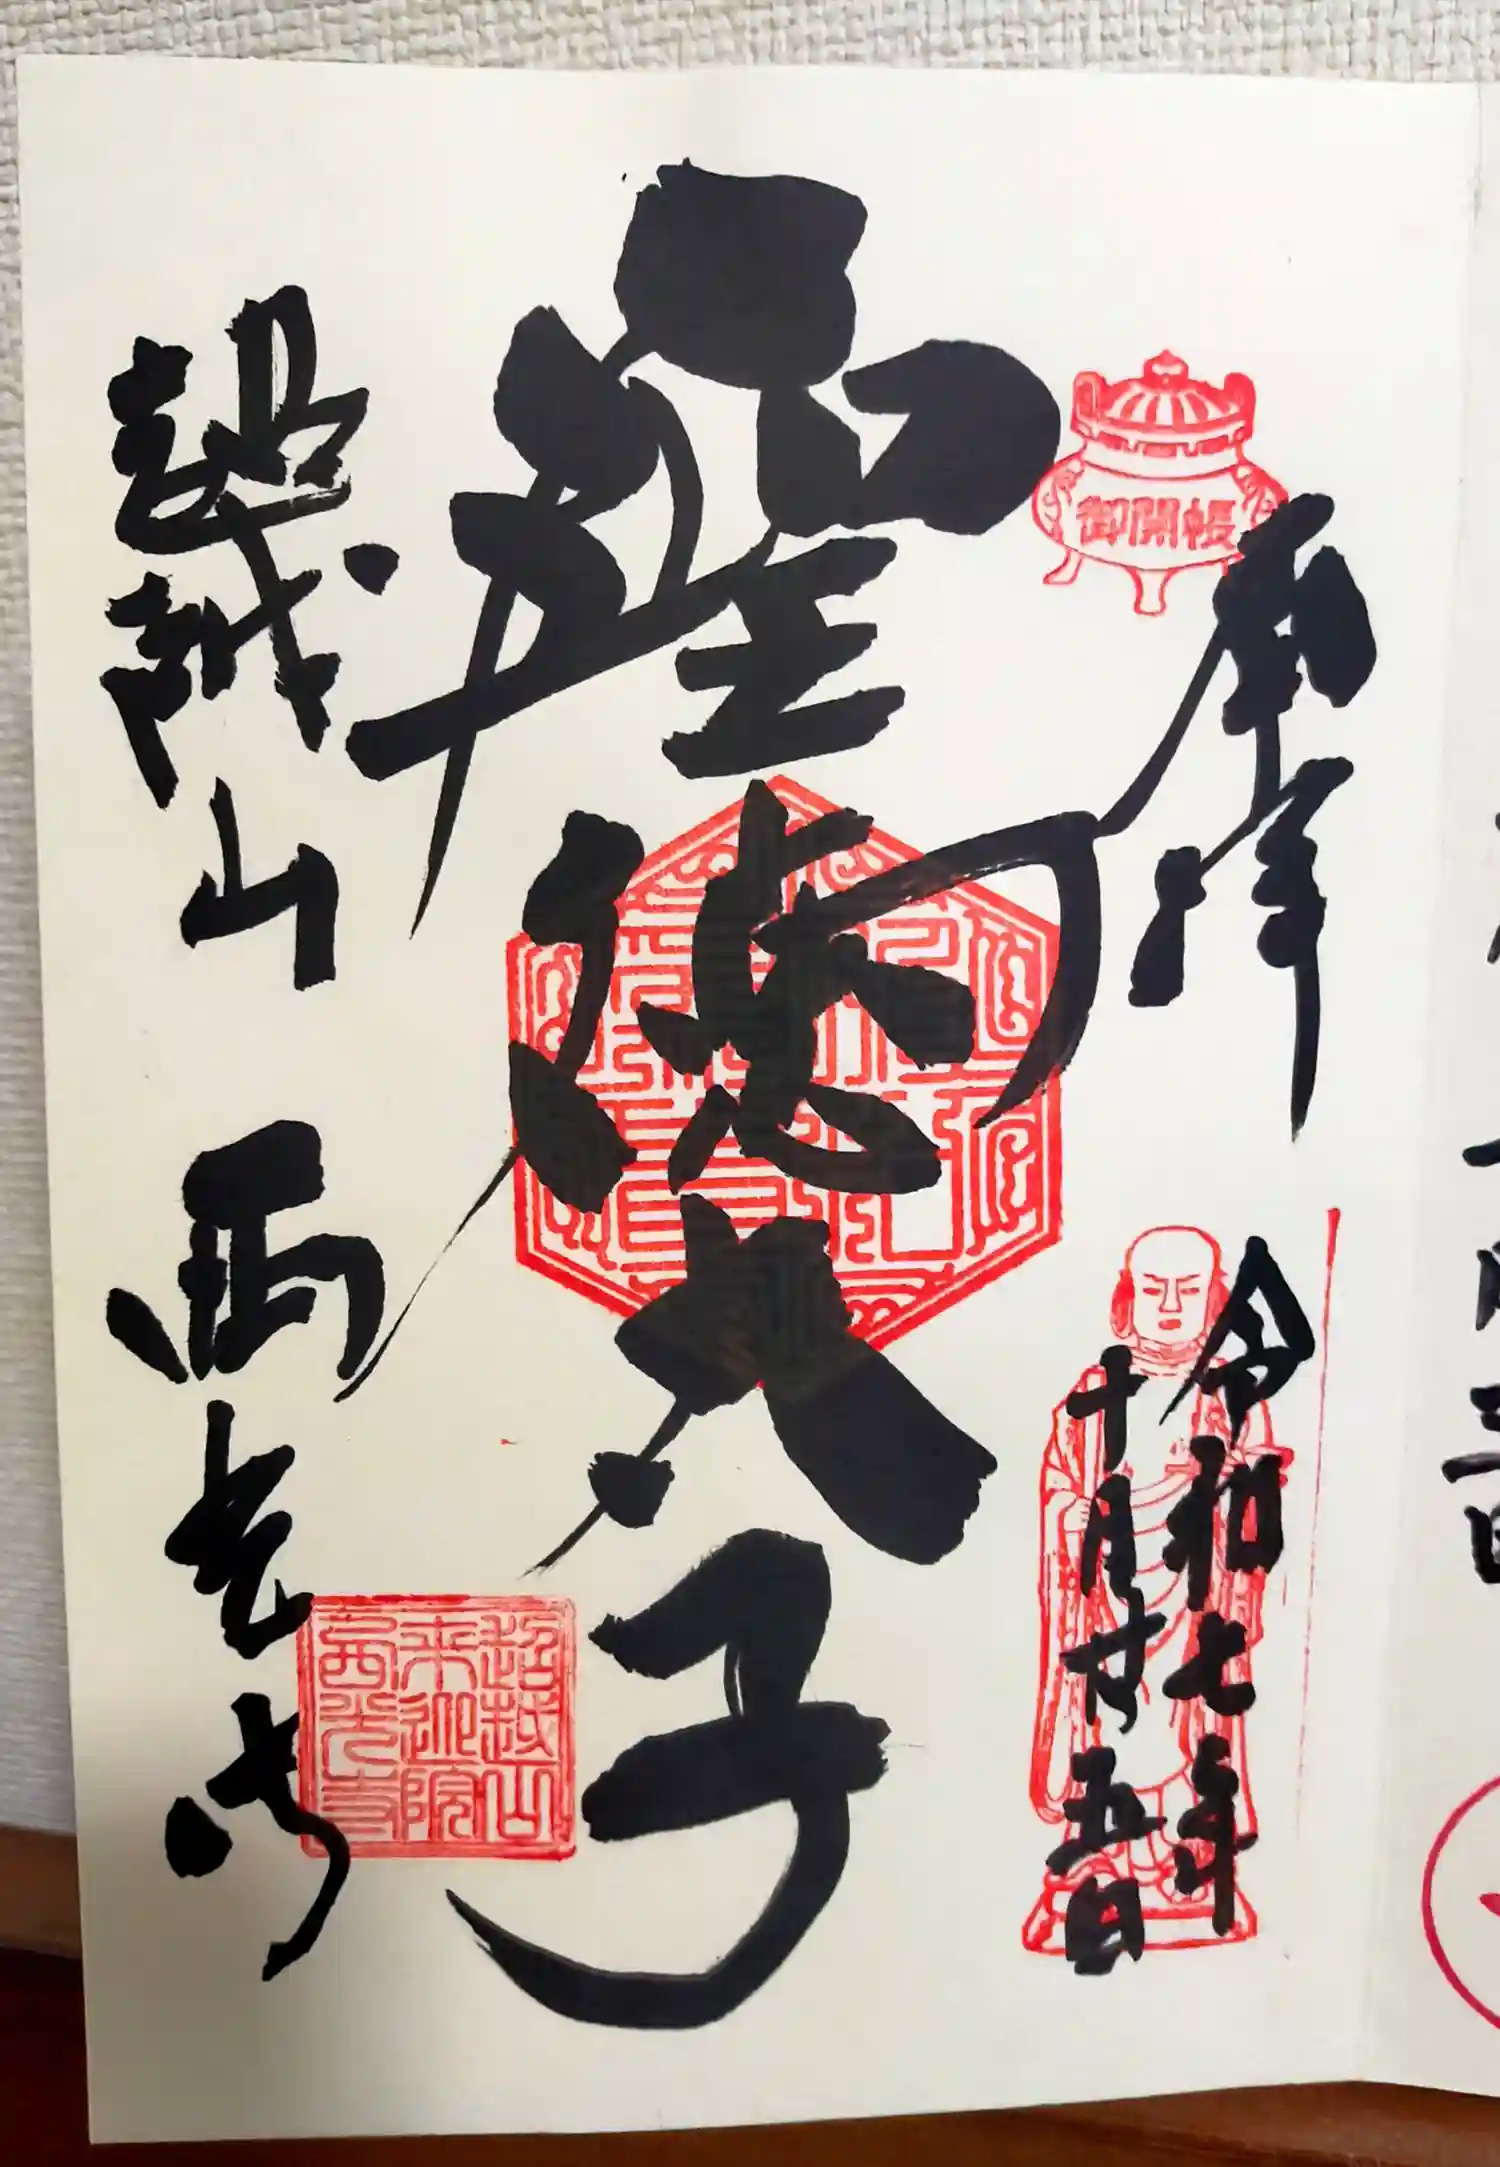 奉拝
御開帳
令和七年
十月廿五日
聖徳太子
超越山 西光寺
超越山
来迎院
西光寺